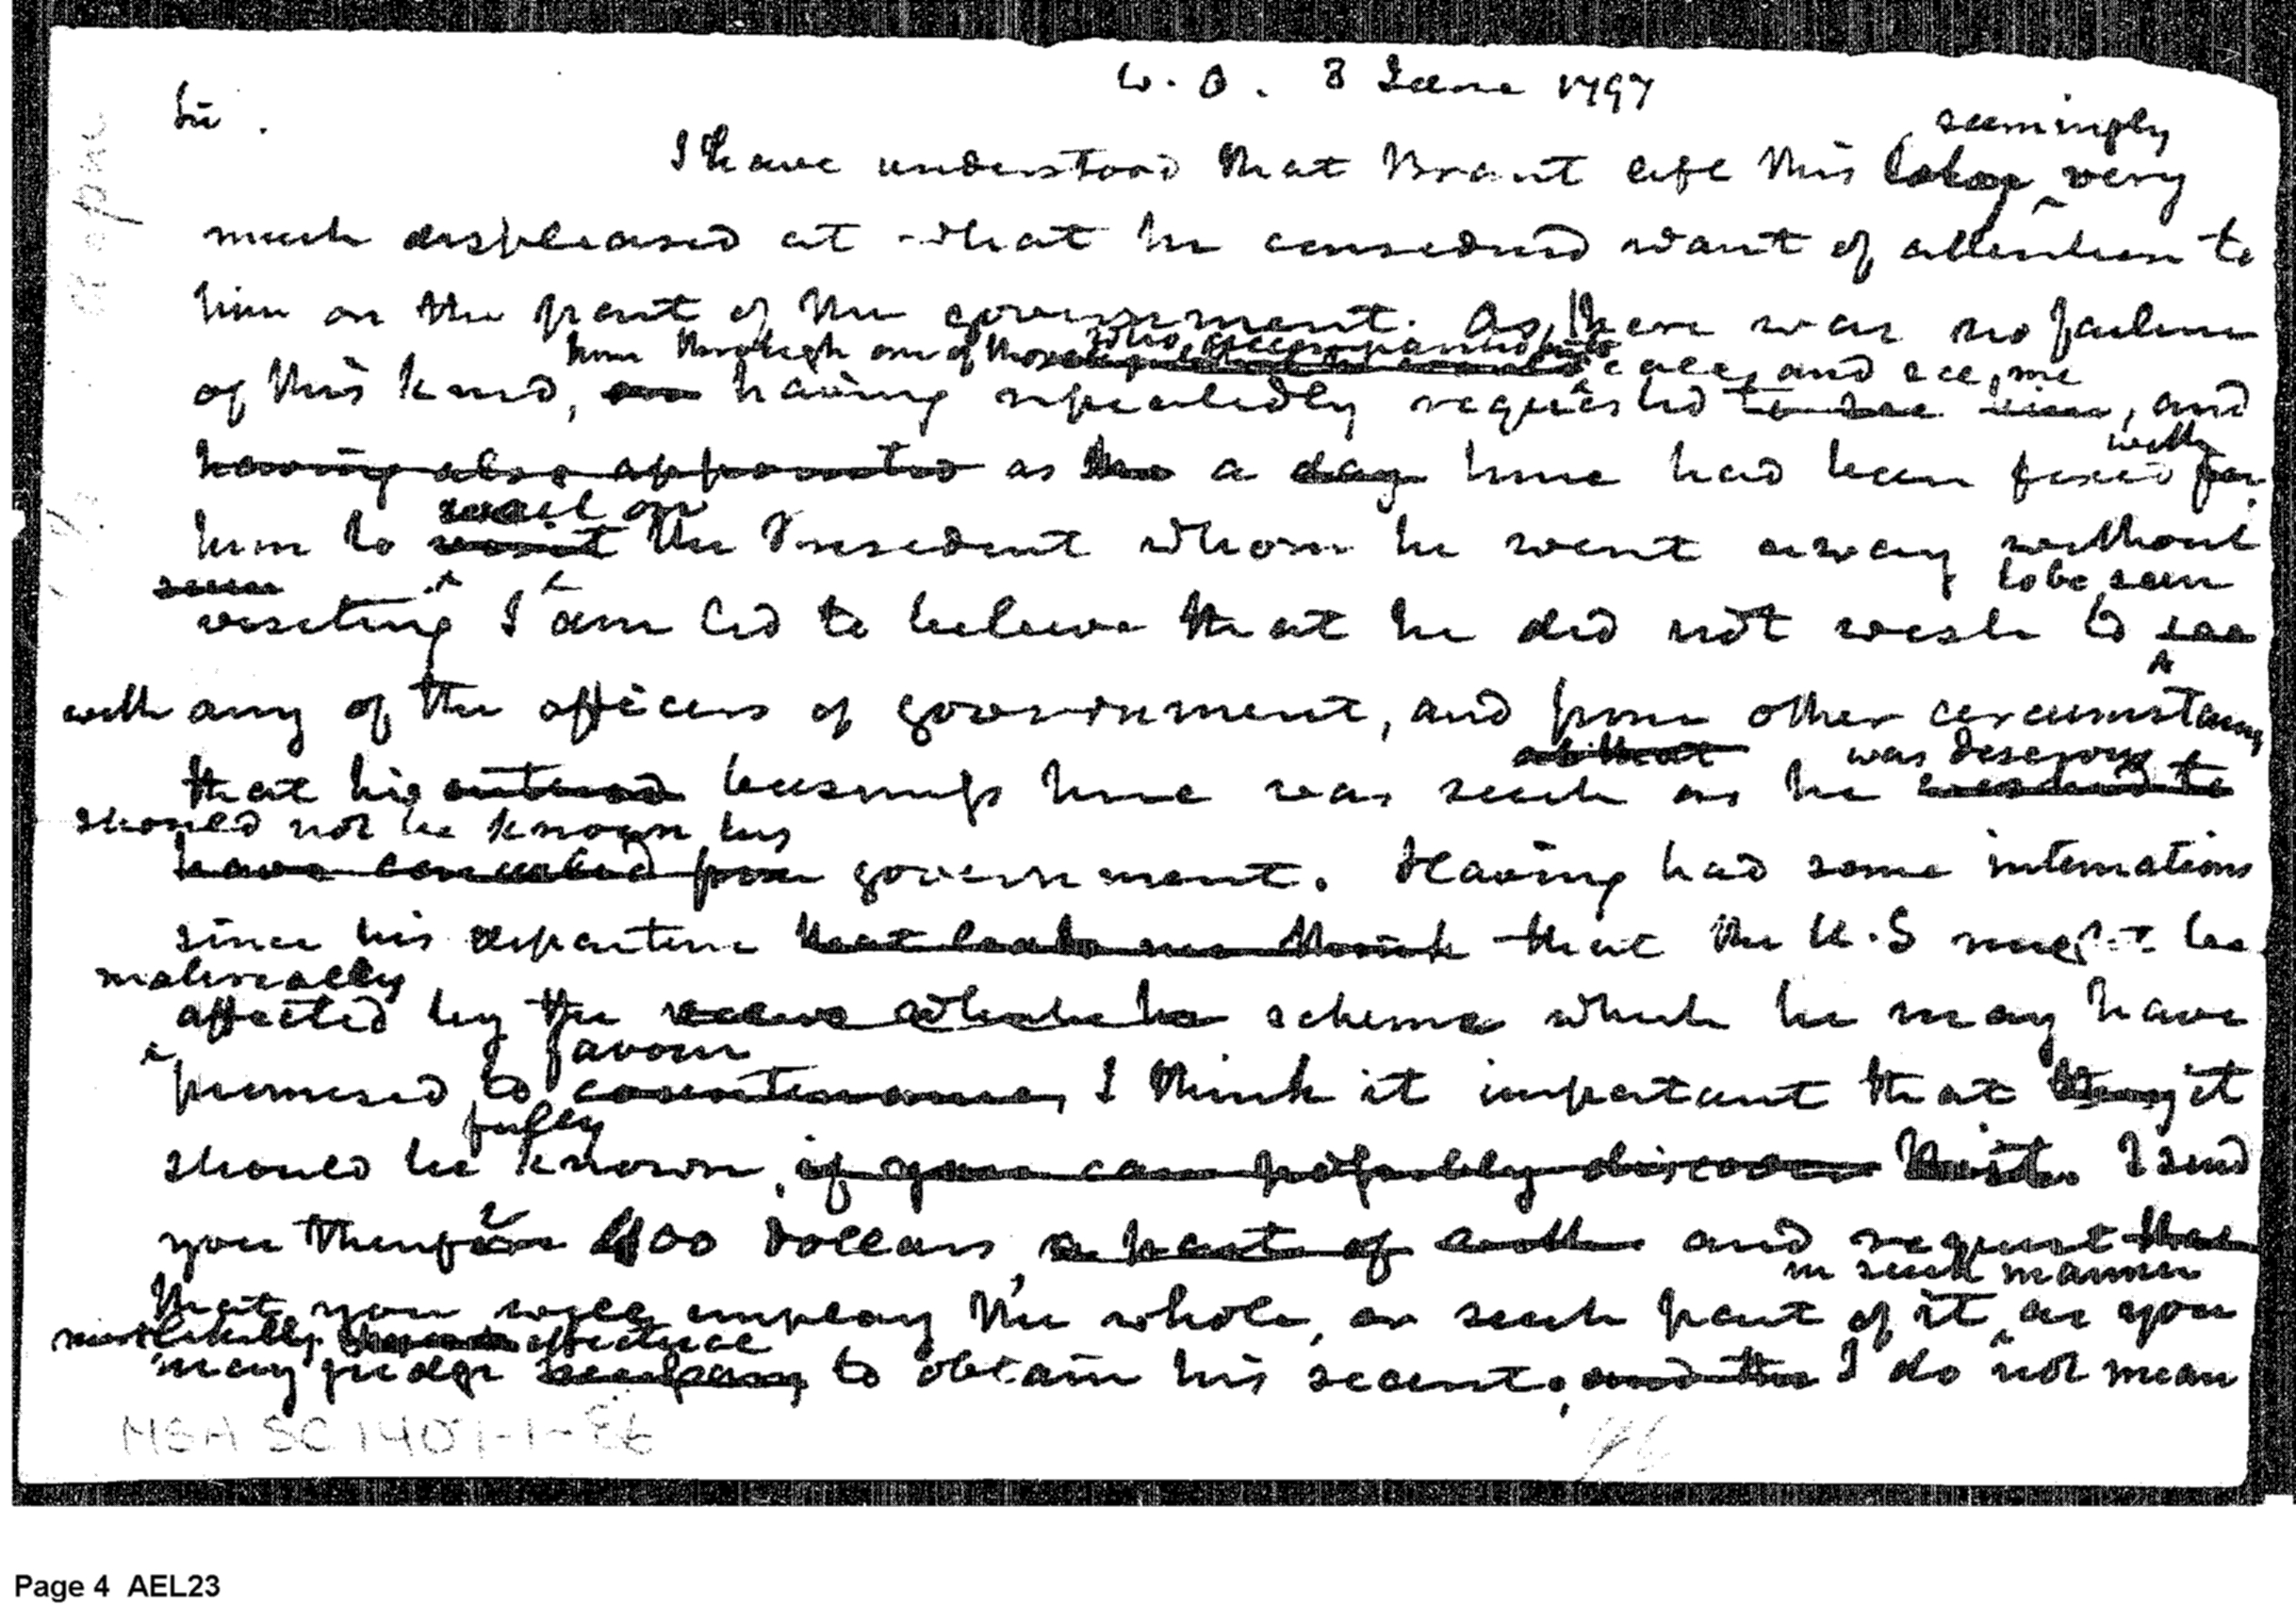 W. O. 3 June 1797
Sir.
seemingly
I have understood that Brant left this very
much displeased at what he considered want of attention to
him on the part of the government. As there was no failure
him through one of those who accompanied call and see me
of this kind, having repeatedly requested to see him, and
with
having also appointed as the a day time had been fixed for
wait on
him to visit the President whom he went away without
to be seen
visiting I am led to believe that he did not wish to see
with any of the officers of government, and from other circumstances
was desirous
that his business here was such as he wished to
should not be known his
have concealed from government. Having had some intimations
since his departure that leads me think that the U.S might be
materially
affected by the scheme which he may have
favour
promised to countenance, I think it important that it
fully
should be known, if you can possibly discover I send
you therefore 400 dollars a part of and request that
in such manner
that you will employ the whole, or such part of it as you
most likely effectual
may judge necessary to obtain his secret, I do not mean
MSA SC 1401-1-86
Page 4 AEL23